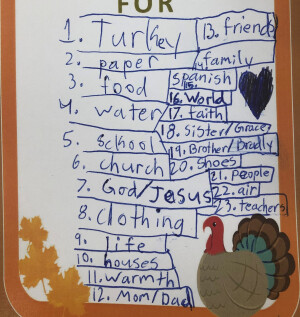 FOR
1. Turkey
2. paper
3. food
4. water
5. school
6. church
7. God/Jesus
8. clothing
9. life
10. houses
11. warmth
12. Mom/Dad
13. friends
14. family
15. Spanish
16. World
17. faith
18. Sister/Grace
19. Brother/Bradly
20. Shoes
21. People
22. air
23. teachers